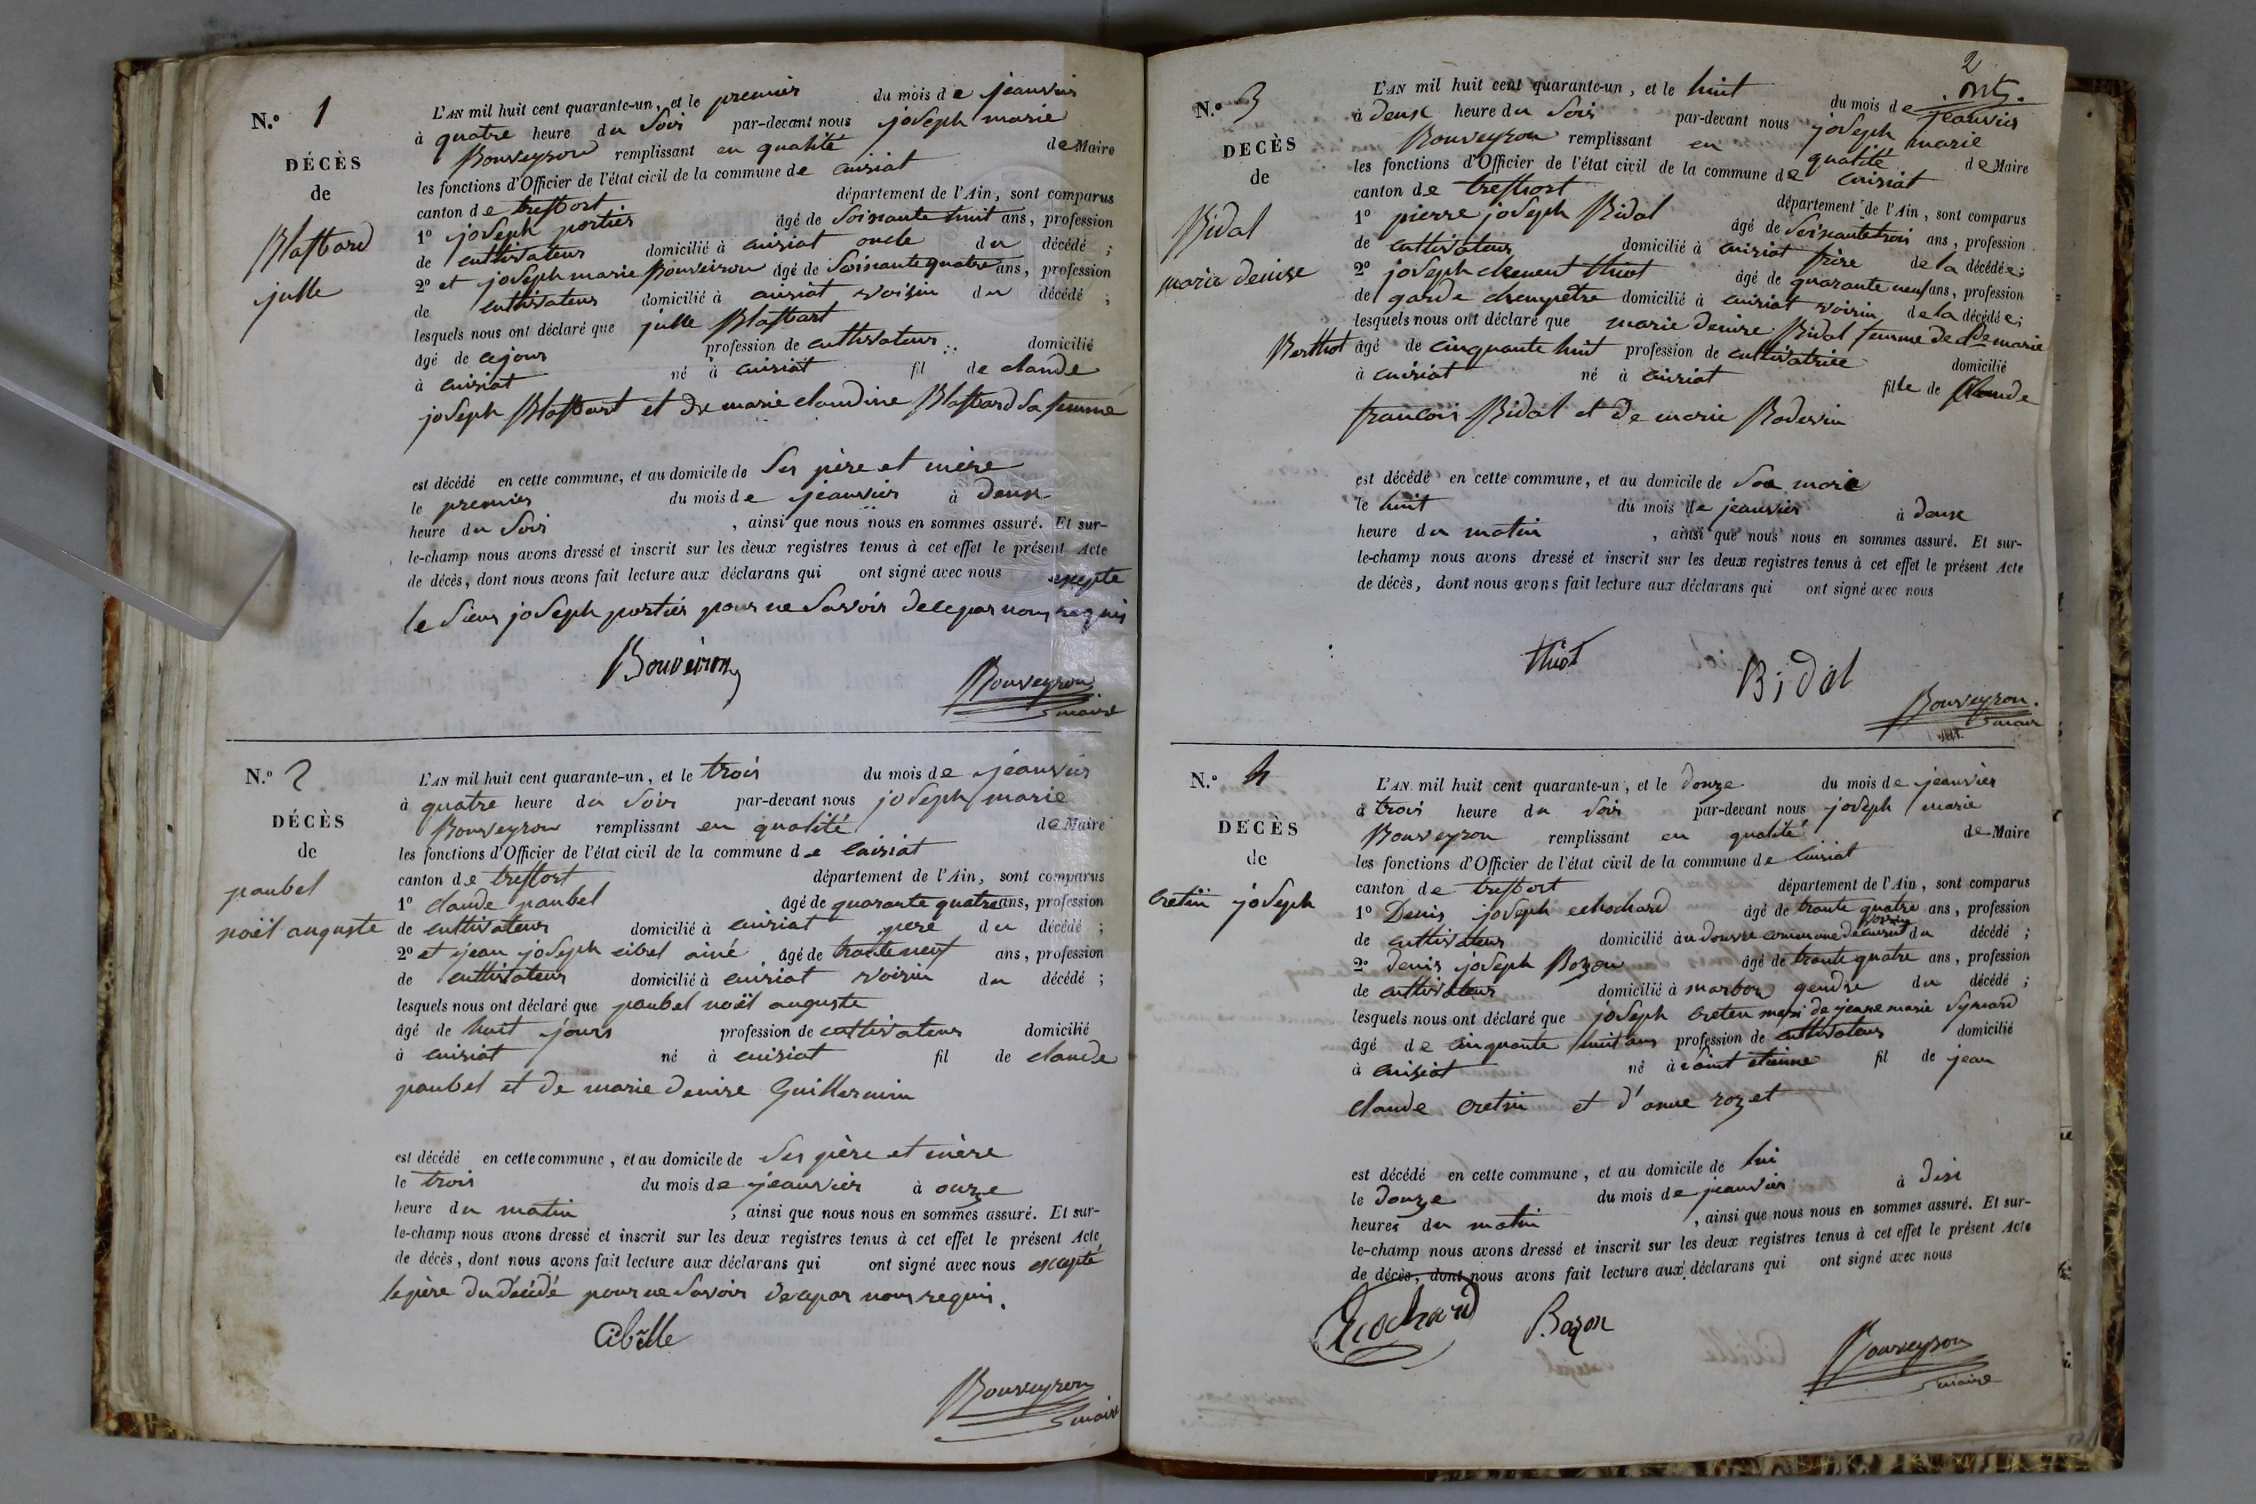 N.° 1
DÉCÈS
de
Blaffard
julle
L'AN mil huit cent quarante-un, et le premier du mois de jeanvier
à quatre heure du Soir par-devant nous joseph marie
Bouveyron remplissant en qualité de Maire
les fonctions d'Officier de l'état civil de la commune de cuisiat
canton de treffort département de l'Ain, sont comparus
1° joseph portier âgé de Soixante huit ans, profession
de cultivateur domicilié à cuisiat oncle du décédé ;
2° et joseph marie Bouveiron âgé de Soixante quatre ans, profession
de cultivateur domicilié à cuisiat voisin du décédé ;
lesquels nous ont déclaré que julle Blaffart
âgé de profession de cultivateur domicilié
à cuisiat né à cuisiat fil de claude
joseph Blaffart et de marie claudine Blaffard sa femme
est décédé en cette commune, et au domicile de Ses père et mère
le premier du mois de jeanvier à deux
heure du Soir , ainsi que nous nous en sommes assuré. Et sur-
le-champ nous avons dressé et inscrit sur les deux registres tenus à cet effet le présent Acte
de décès, dont nous avons fait lecture aux déclarans qui ont signé avec nous excepte
le Sieur joseph portier pour ne Savoir de ce par nous requis
Bouveiron
Bouveyron
maire
N.° 2
DÉCÈS
de
paubel
noël auguste
L'AN mil huit cent quarante-un, et le trois du mois de jeanvier
à quatre heure du Soir par-devant nous joseph marie
Bouveyron remplissant en qualité de Maire
les fonctions d'Officier de l'état civil de la commune de Cuisiat
canton de treffort département de l'Ain, sont comparus
1° claude paubel âgé de quarante quatre ans, profession
de cultivateur domicilié à cuisiat pere du décédé ;
2° et jean joseph cibel ainé âgé de trante neuf ans, profession
de cultivateur domicilié à cuisiat voisin du décédé ;
lesquels nous ont déclaré que paubel noël auguste
âgé de huit jours profession de cultivateur domicilié
à cuisiat né à cuisiat fil de claude
paubel et de marie denise Guillermin
est décédé en cette commune, et au domicile de Ses père et mère
le trois du mois de jeanvier à onze
heure du matin , ainsi que nous nous en sommes assuré. Et sur-
le-champ nous avons dressé et inscrit sur les deux registres tenus à cet effet le présent Acte
de décès, dont nous avons fait lecture aux déclarans qui ont signé avec nous excepté
le père du décédé pour ne Savoir de ce par nous requis.
Cibelle
Bouveyron
maire
2
N.° 3
DECÈS
de
Bidal
marie denise
L'AN mil huit cent quarante-un, et le huit du mois de jeanvier
à deux heure du Soir par-devant nous joseph marie
Bouveyron remplissant en qualité de Maire
les fonctions d'Officier de l'état civil de la commune de cuisiat
canton de treffort département de l'Ain, sont comparus
1° pierre joseph Bidal âgé de Soixante trois ans, profession
de cultivateur domicilié à cuisiat frère de la décédée ;
2° joseph clement thiot âgé de quarante neuf ans, profession
de garde champêtre domicilié à cuisiat voisin de la décédée ;
lesquels nous ont déclaré que marie denise Bidal femme de Cde marie
Berthot âgé de cinquante huit profession de cultivatrice domicilié
à cuisiat né à cuisiat fille de Claude
francois Bidal et de marie Rodevin
est décédé en cette commune, et au domicile de Son mari
le huit du mois de jeanvier à deux
heure du matin , ainsi que nous nous en sommes assuré. Et sur-
le-champ nous avons dressé et inscrit sur les deux registres tenus à cet effet le présent Acte
de décès, dont nous avons fait lecture aux déclarans qui ont signé avec nous
thiot
Bidal
Bouveyron.
maire
N.° 4
DECÈS
de
Cretin joseph
L'AN mil huit cent quarante-un, et le douze du mois de jeanvier
à trois heure du Soir par-devant nous joseph marie
Bouveyron remplissant en qualité de Maire
les fonctions d'Officier de l'état civil de la commune de Cuisiat
canton de treffort département de l'Ain, sont comparus
1° Denis joseph echochard âgé de trante quatre ans, profession
voisin
de cultivateur domicilié à commune de cuisiat du décédé ;
2° denis joseph Bozon âgé de trante quatre ans, profession
de cultivateur domicilié à marboz gendre du décédé ;
lesquels nous ont déclaré que joseph Cretin mari de jeanne marie Symard
âgé de cinquante huit ans profession de cultivateur domicilié
à cuisiat né à saint etienne fil de jean
claude cretin et d'anne rozet
est décédé en cette commune, et au domicile de lui
le douze du mois de jeanvier à dix
heures du matin , ainsi que nous nous en sommes assuré. Et sur-
le-champ nous avons dressé et inscrit sur les deux registres tenus à cet effet le présent Acte
de décès, dont nous avons fait lecture aux déclarans qui ont signé avec nous
Ecochard
Bozon
Bouveyron
maire